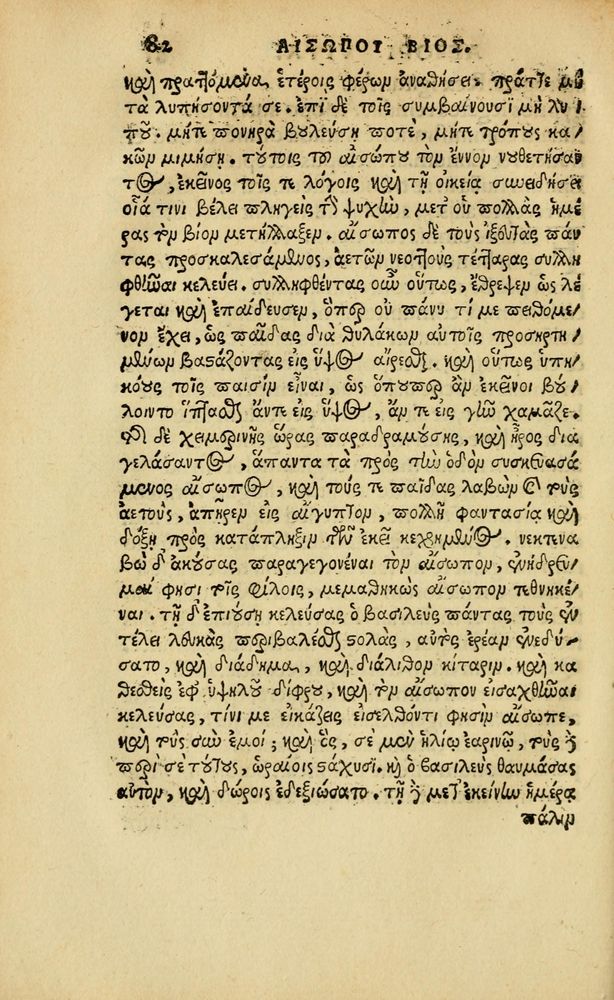 82 ΑΙΣΩΠΟΥ ΒΙΟΣ.
καὶ πραττόμενα, ἑτέροις φέρων ἀναθήσει. πρᾶττε μὴ
τὰ λυπήσοντά σε. ἐπὶ δὲ τοῖς συμβαίνουσι μὴ λυ
ποῦ. μήτε πονηρὰ βουλεύσῃ ποτὲ, μήτε τρόπους κα
κῶν μιμήσῃ. τούτοις τοῦ αἰσώπου τὸν ἔννον νουθετήσαν
τος, ἐκεῖνος τοῖς τε λόγοις καὶ τῇ οἰκείᾳ συνειδήσει
οἷά τινι βέλει πληγεὶς τὴν ψυχὴν, μετ' οὐ πολλὰς ἡμέ
ρας τὸν βίον μετήλλαξεν. αἴσωπος δὲ τοὺς ἰξευτὰς πάν
τας προσκαλεσάμενος, ἀετῶν νεοττοὺς τέτταρας συλλη
φθῆναι κελεύει. συλληφθέντας οὖν οὕτως, ἔθρεψεν ὡς λέ
γεται καὶ ἐπαίδευσεν, ὅπερ οὐ πάνυ τί με πειθόμε
νον ἔχει, ὡς παῖδας διὰ θυλάκων αὐτοῖς προσηρτη
μένων βαστάζοντας εἰς ὕψος αἴρεσθαι. καὶ οὕτως ὑπη
κόους τοῖς παισὶν εἶναι, ὡς ὅπουπερ ἂν ἐκεῖνοι βού
λοιντο ἵπτασθαι, ἄντε εἰς ὕψος, ἄν τε εἰς γῆν χαμᾶζε.
τῆς δὲ χειμερινῆς ὥρας παραδραμούσης, καὶ ἦρος δια
γελάσαντος, ἅπαντα τὰ πρὸς τὴν ὁδὸν συσκευασά
μενος αἴσωπος, καὶ τοὺς τε παῖδας λαβὼν καὶ τοὺς
ἀετοὺς, ἀπῆρεν εἰς αἴγυπτον, πολλῇ φαντασίᾳ καὶ
δόξῃ πρὸς κατάπληξιν τῶν ἐκεῖ κεχρημένος. νεκτενα
βὼ δ' ἀκούσας παραγεγονέναι τὸν αἴσωπον, ἐνήδρευ
μαί φησι τοῖς φίλοις, μεμαθηκὼς αἴσωπον τεθνηκέ
ναι. τῇ δ' ἐπιούσῃ κελεύσας ὁ βασιλεὺς πάντας τοὺς ἐν
τέλει λευκὰς περιβαλέσθαι στολὰς, αὐτὸς ἐρέαν ἐνεδύ
σατο, καὶ διάδημα, καὶ διάλιθον κίταριν. καὶ κα
θεσθεὶς ἐφ' ὑψηλοῦ δίφρου, καὶ τὸν αἴσωπον εἰσαχθῆναι
κελεύσας, τίνι με εἰκάζεις εἰσελθόντι φησὶν αἴσωπε,
καὶ τοὺς σὺν ἐμοί; καὶ ὃς, σὲ μὲν ἡλίῳ ἐαρινῷ, τοὺς δὲ
περὶ σὲ τούτους, ὡραίοις στάχυσι. καὶ ὁ βασιλεὺς θαυμάσας
αὐτὸν, καὶ δώροις ἐδεξιώσατο. τῇ δὲ μετ' ἐκείνην ἡμέρᾳ
πάλιν